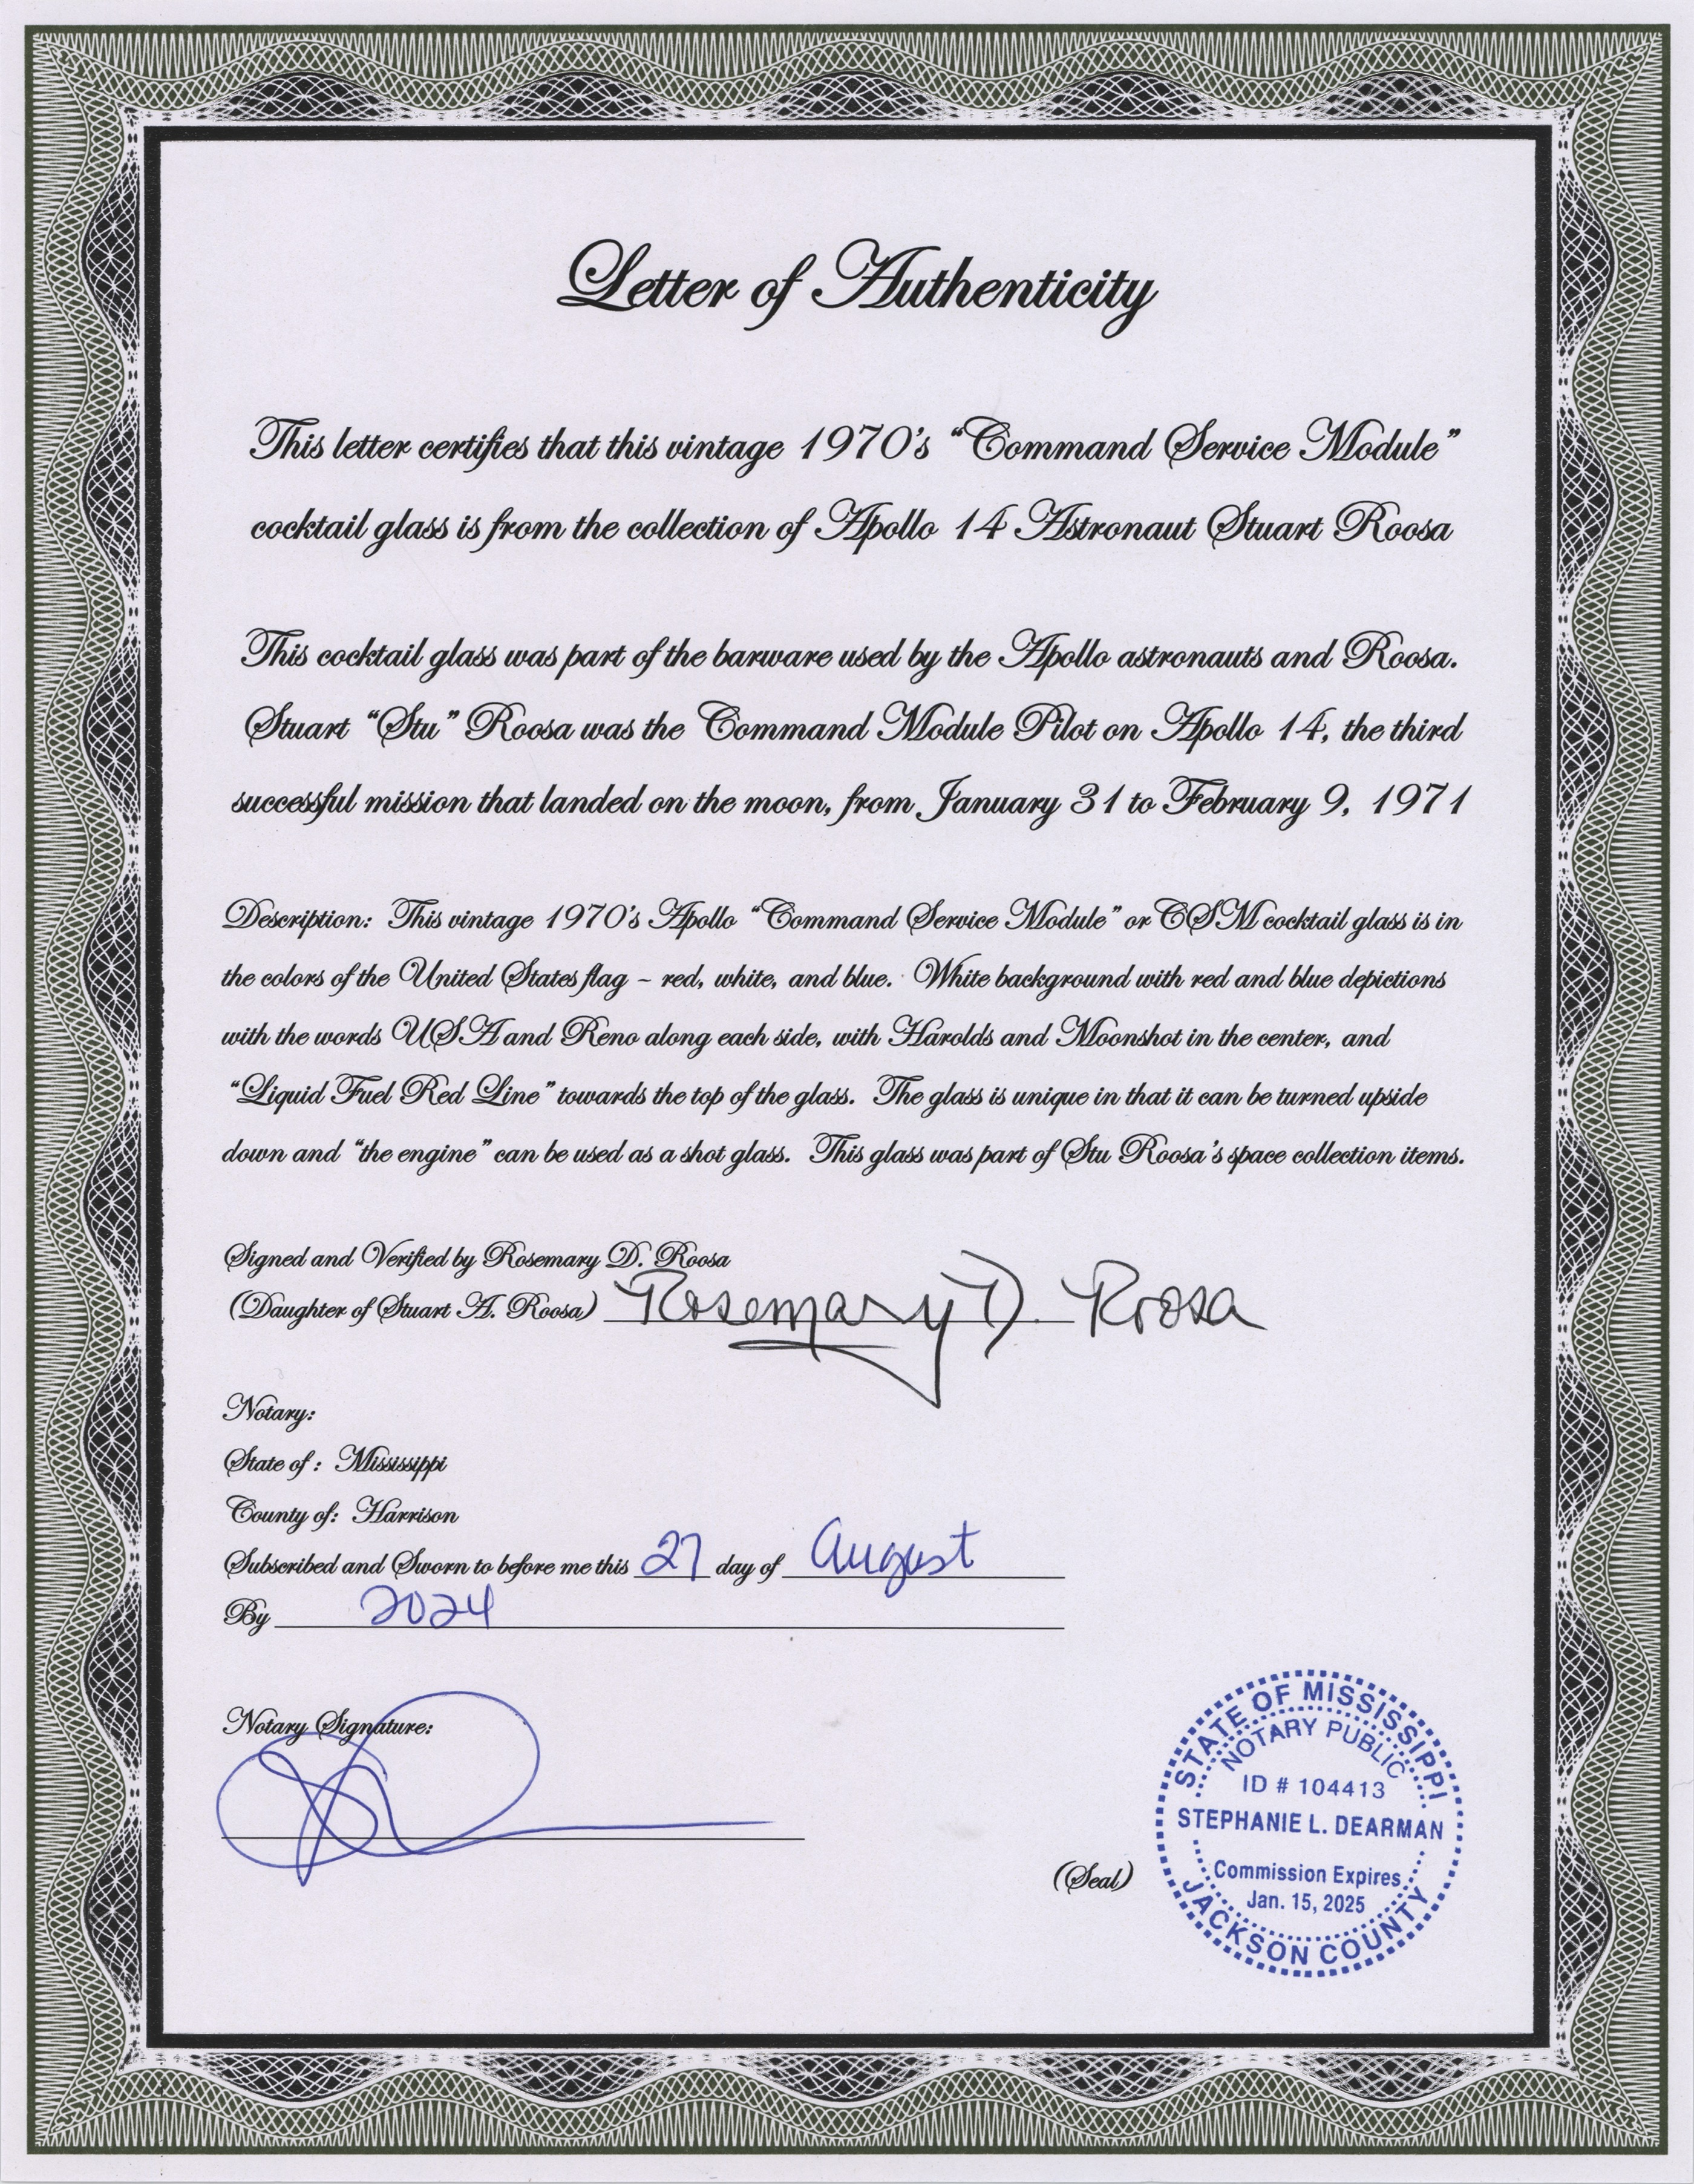 Letter of Authenticity
This letter certifies that this vintage 1970's “Command Service Module”
cocktail glass is from the collection of Apollo 14 Astronaut Stuart Roosa
This cocktail glass was part of the barware used by the Apollo astronauts and Roosa.
Stuart “Stu” Roosa was the Command Module Pilot on Apollo 14, the third
successful mission that landed on the moon, from January 31 to February 9, 1971
Description: This vintage 1970's Apollo “Command Service Module” or CSM cocktail glass is in
the colors of the United States flag – red, white, and blue. White background with red and blue depictions
with the words USA and Reno along each side, with Harolds and Moonshot in the center, and
“Liquid Fuel Red Line” towards the top of the glass. The glass is unique in that it can be turned upside
down and “the engine” can be used as a shot glass. This glass was part of Stu Roosa's space collection items.
Signed and Verified by Rosemary D. Roosa
(Daughter of Stuart A. Roosa) Rosemary D. Roosa
Notary:
State of : Mississippi
County of: Harrison
Subscribed and Sworn to before me this 27 day of August
By 2024
Notary Signature:
(Seal)
STATE OF MISSISSIPPI
NOTARY PUBLIC
ID # 104413
STEPHANIE L. DEARMAN
Commission Expires
Jan. 15, 2025
JACKSON COUNTY